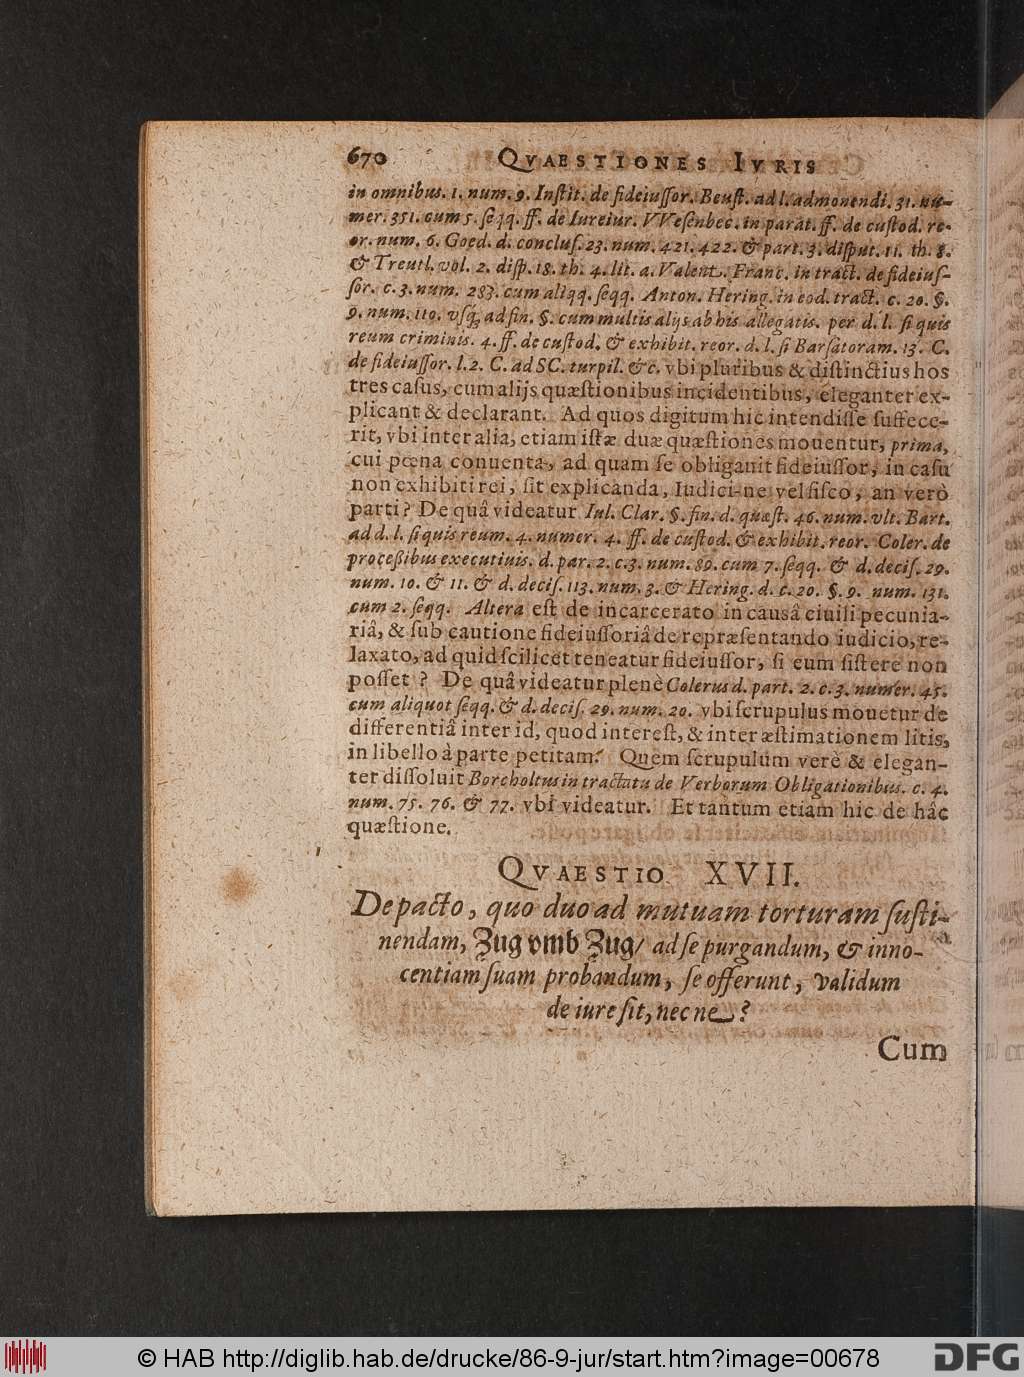 670 QVAESTIONES IVRIS
in omnibus. 1. num. 9. Inſtit. de fideiuſſor. Beuſt. ad l. admonendi. 31. nu-
mer. 351. cum 5. ſeqq. ff. de Iureiur. VVeſenbec. in parat. ff. de cuſtod. re-
or. num. 6. Goed. d. concluſ. 23. num. 421. 422. & part. 3. diſput. 11. th. 8.
& Treutl. vol. 2. diſp. 18. th. 4. lit. a. Valent. Franc. in tract. de fideiuſ-
ſor. c. 3. num. 283. cum aliqq. ſeqq. Anton. Hering. in eod. tract. c. 20. §.
9. num. 110. vſq; ad fin. §. cum multis alijs ab his allegatis. per d. l. ſi quis
reum criminis. 4. ff. de cuſtod. & exhibit. reor. d. l. ſi Barſatoram. 13. C.
de fideiuſſor. l. 2. C. ad SC. turpil. &c. vbi pluribus & diſtinctius hos
tres caſus, cum alijs quæſtionibus incidentibus, eleganter ex-
plicant & declarant. Ad quos digitum hic intendiſſe ſuffece-
rit, vbi inter alia, etiam iſtæ duæ quæſtiones mouentur, prima,
cui pœna conuenta, ad quam ſe obligauit fideiuſſor, in caſu
non exhibiti rei, ſit explicanda, Iudici-ne vel fiſco, an verò
parti? De quâ videatur Iul. Clar. §. fin. d. quæſt. 46. num. vlt. Bart.
ad d. l. ſi quis reum. 4. numer. 4. ff. de cuſtod. & exhibit. reor. Coler. de
proceßibus executiuis. d. par. 2. c. 3. num. 89. cum 7. ſeqq. & d. deciſ. 29.
num. 10. & 11. & d. deciſ. 113. num. 3. & Hering. d. c. 20. §. 9. num. 131.
cum 2. ſeqq. Altera eſt de incarcerato in causâ ciuili pecunia-
riâ, & ſub cautione fideiuſſoriâ de repræſentando iudicio, re-
laxato, ad quid ſcilicet teneatur fideiuſſor, ſi eum ſiſtere non
poſſet? De quâ videatur plenè Colerus d. part. 2. c. 3. numer. 45.
cum aliquot ſeqq. & d. deciſ. 29. num. 20. vbi ſcrupulus mouetur de
differentiâ inter id, quod intereſt, & inter æſtimationem litis,
in libello à parte petitam. Quem ſcrupulum verè & elegan-
ter diſſoluit Borcholtus in tractatu de Verborum Obligationibus. c. 4.
num. 75. 76. & 77. vbi videatur. Et tantum etiam hic de hâc
quæſtione.
QVAESTIO XVII.
De pacto, quo duo ad mutuam torturam ſuſti-
nendam, Zug vmb Zug/ ad ſe purgandum, & inno-
centiam ſuam probandum, ſe offerunt, validum
de iure ſit, nec ne?
Cum
© HAB http://diglib.hab.de/drucke/86-9-jur/start.htm?image=00678
DFG